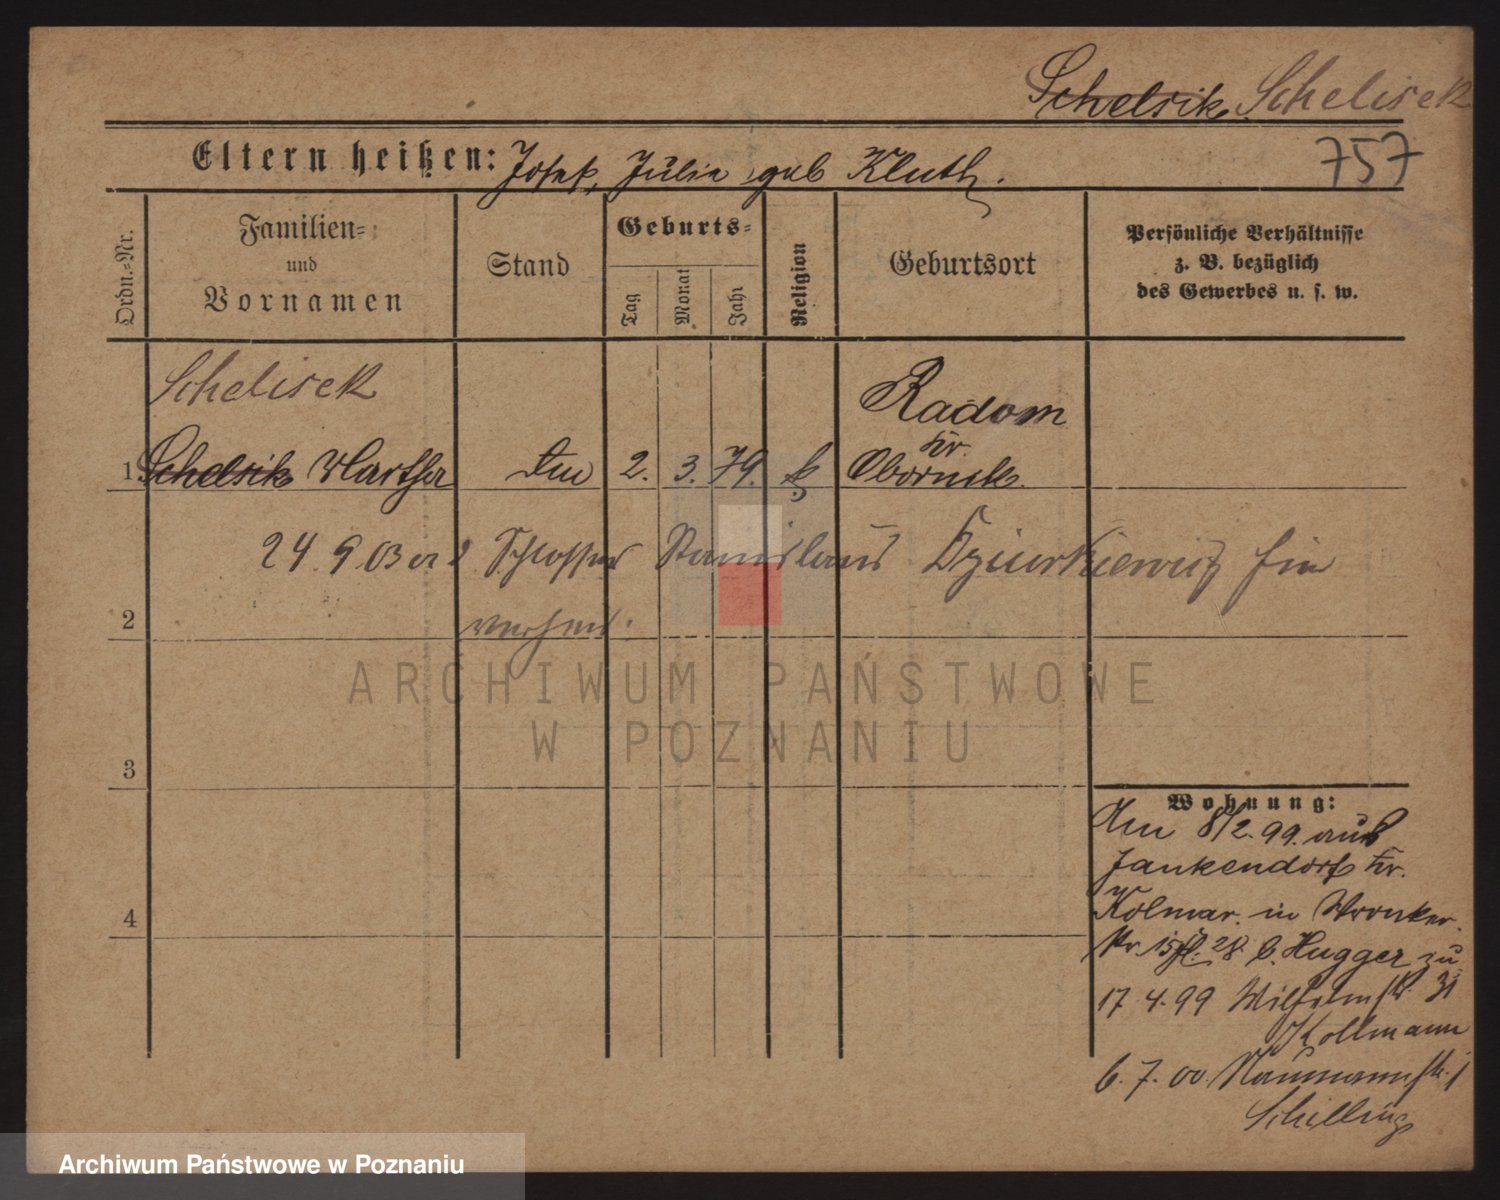 Schelsik Schelisek
Eltern heißen: Josef, Julie geb Kluth.
757
Ordn.-Nr.
Familien-
und
Vornamen
Stand
Geburts-
Tag
Monat
Jahr
Religion
Geburtsort
Persönliche Verhältnisse
z. B. bezüglich
des Gewerbes u. s. w.
Schelisek
Radom
Kr.
1 Schelsik Martha 2. 3. 79. k Obornik.
24 9 03 Schlosser Stanislaus
2
3
ARCHIWUM PAŃSTWOWE
W POZNANIU
Wohnung:
Am 8/2. 99. aus
Jankendorf Kr.
4
Kolmar. in Wronker
28 b. Hugger zu
17 4. 99 Wilhelmstr. 31
Kollmann
6. 7. 00. Naumannstr. 1
Schilling
Archiwum Państwowe w Poznaniu